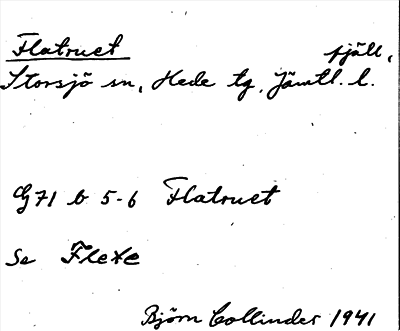 Flatruet fjäll,
Storsjö sn, Hede tg, Jämtl. l.
G71 b 5-6 Flatruet
Se Flexe
Björn Collinder 1941